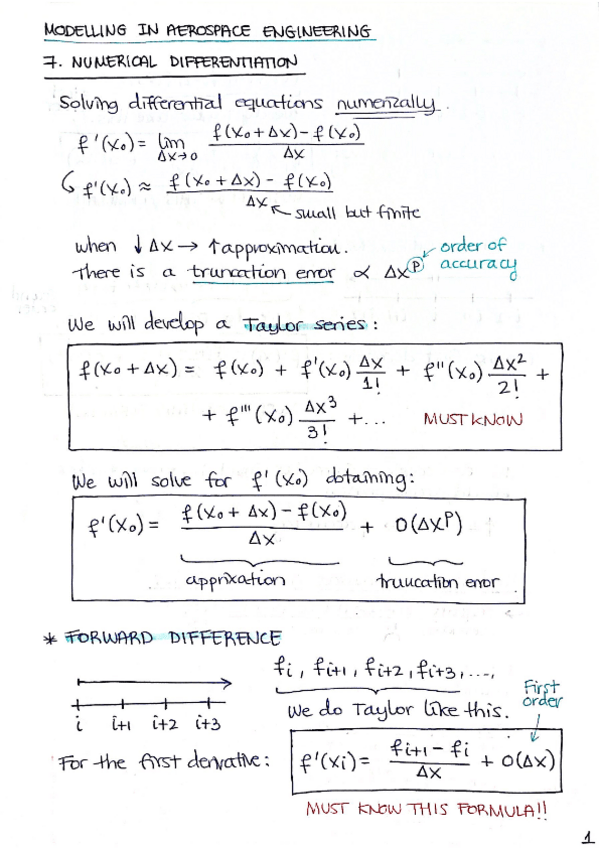 MODELLING IN AEROSPACE ENGINEERING
7. NUMERICAL DIFFERENTIATION
Solving differential equations numerizally.
f'(x₀) = lim Δx→0 (f(x₀+Δx)-f(x₀))/Δx
↳ f'(x₀) ≈ (f(x₀+Δx) - f(x₀))/Δx ← small but finite
when ↓Δx → ↑approximation.
There is a truncation error ∝ Δx^P ← order of accuracy
We will develop a Taylor series:
f(x₀+Δx) = f(x₀) + f'(x₀) Δx/1! + f''(x₀) Δx²/2! +
+ f'''(x₀) Δx³/3! + ... MUST KNOW
We will solve for f'(x₀) obtaining:
f'(x₀) = (f(x₀+Δx) - f(x₀))/Δx + O(Δx^P)
apprixation truncation error
* FORWARD DIFFERENCE
fi, fi+1, fi+2, fi+3, ...,
i i+1 i+2 i+3 We do Taylor like this.
First order
For the first derivative: f'(xi) = (fi+1 - fi)/Δx + O(Δx)
MUST KNOW THIS FORMULA!!
1